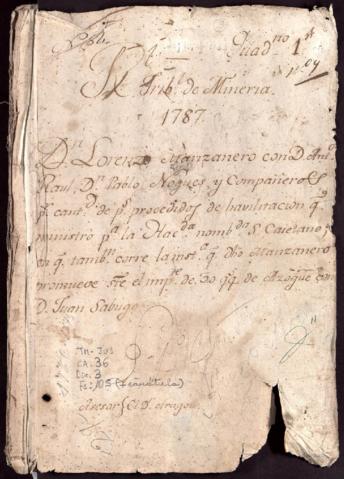 Quad.no 1.º
Rl. Tribl. de Mineria.
1787.
Dn. Lorenzo Manzanero con D. Anto.
Raul, Dn. Pablo Nogues, y Compañeros
pr. cantd. de ps. procedidos de havilitacion qe.
ministro pa. la Hacda. nombda. S. Caietano;
en qe. tambn. corre la insta. qe. dho Manzanero
promueve sre. el impe. de 30 qqs. de Azogue con
D. Juan Sabugo.
TM-JU3
CA. 36
De. 3
Fs: 105 (+ carátula)
Asesor